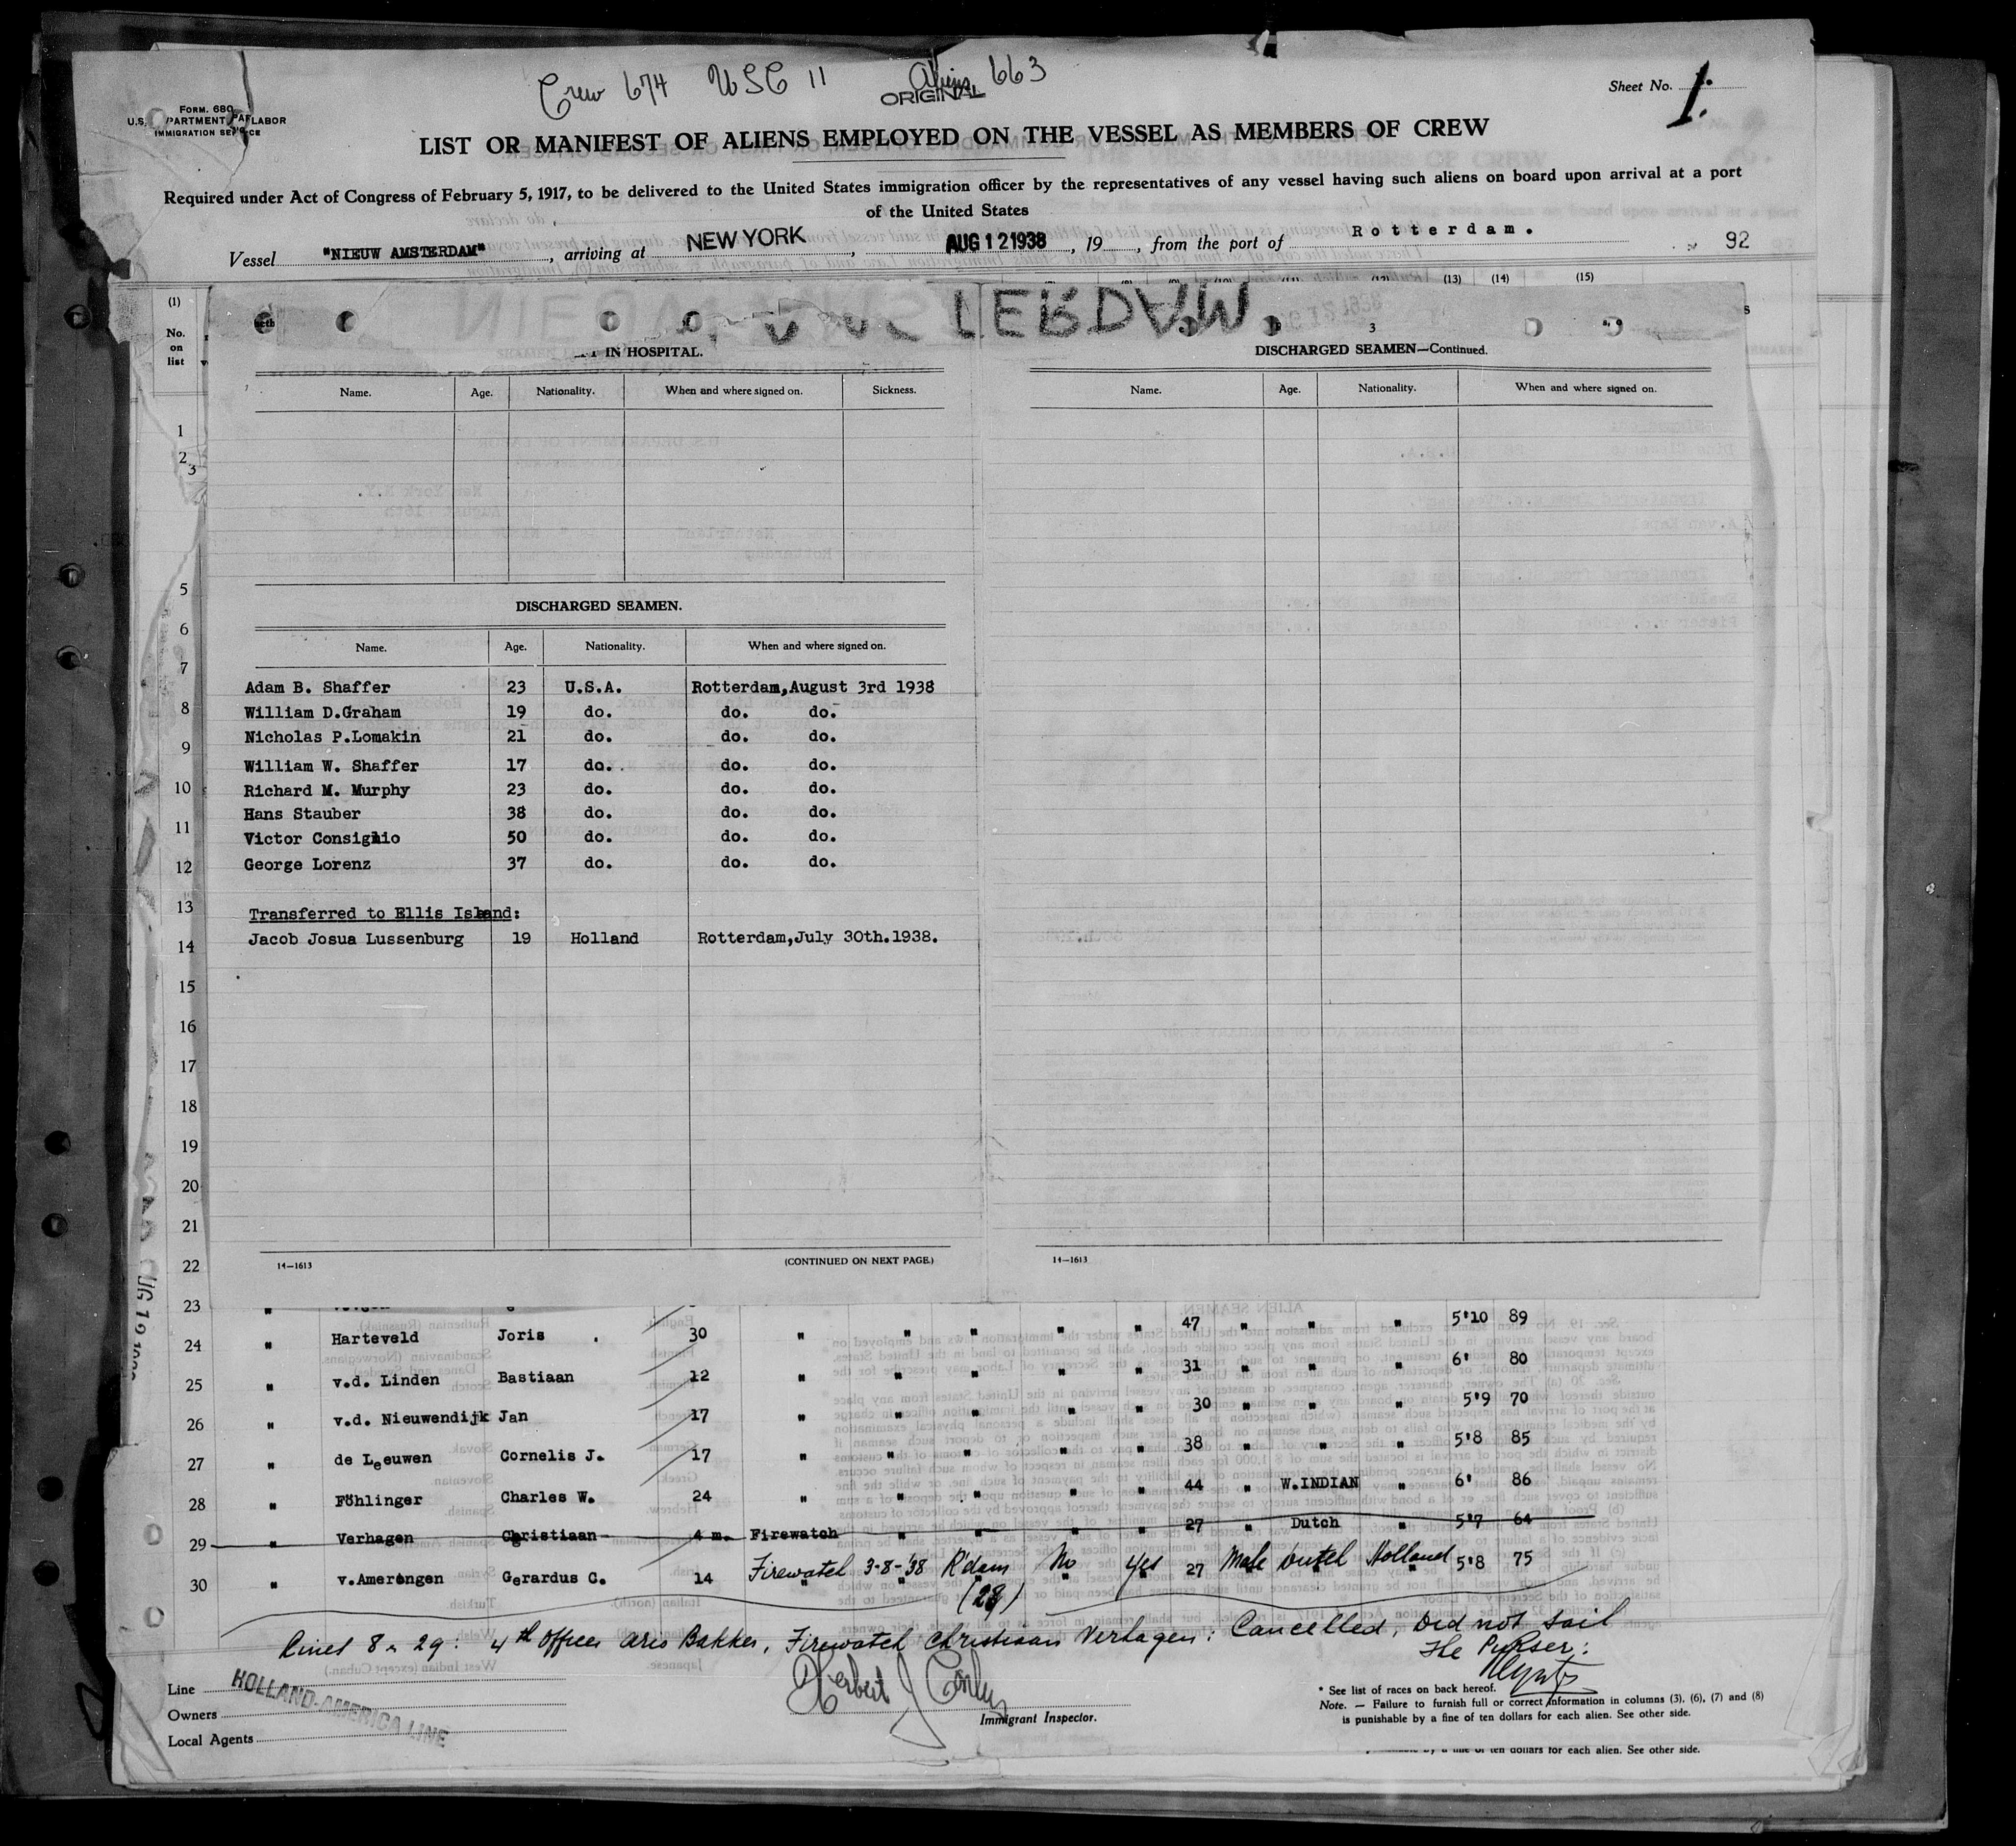 Crew 674 USC 11 Aliens 663
ORIGINAL
Sheet No. 1.
FORM. 680
U.S. DEPARTMENT OF LABOR
IMMIGRATION SERVICE
LIST OR MANIFEST OF ALIENS EMPLOYED ON THE VESSEL AS MEMBERS OF CREW
Required under Act of Congress of February 5, 1917, to be delivered to the United States immigration officer by the representatives of any vessel having such aliens on board upon arrival at a port
of the United States
Vessel "NIEUW AMSTERDAM", arriving at NEW YORK, AUG 12 1938, 19, from the port of Rotterdam. 92
(1) (13) (14) (15)
No. on list
3
IN HOSPITAL.
DISCHARGED SEAMEN—Continued.
Name. Age. Nationality. When and where signed on. Sickness.
Name. Age. Nationality. When and where signed on.
1
2
3
5
DISCHARGED SEAMEN.
6
Name. Age. Nationality. When and where signed on.
7
Adam B. Shaffer 23 U.S.A. Rotterdam,August 3rd 1938
8 William D.Graham 19 do. do. do.
9 Nicholas P.Lomakin 21 do. do. do.
William W. Shaffer 17 do. do. do.
10 Richard M. Murphy 23 do. do. do.
Hans Stauber 38 do. do. do.
11 Victor Consiglio 50 do. do. do.
12 George Lorenz 37 do. do. do.
13 Transferred to Ellis Island:
14 Jacob Josua Lussenburg 19 Holland Rotterdam,July 30th.1938.
15
16
17
18
19
20
21
22 14—1613 (CONTINUED ON NEXT PAGE.) 14—1613
23 " 5'10 89
24 " Harteveld Joris . 30 " " " " " 47 " " "
25 " v.d. Linden Bastiaan 12 " " " " " 31 " " " 6' 80
26 " v.d. Nieuwendijk Jan 17 " " " " " 30 " " " 5'9 70
27 " de Leeuwen Cornelis J. 17 " " " " " 38 " " " 5'8 85
28 " Föhlinger Charles W. 24 " " " " " 44 " W.INDIAN " 6' 86
29 " Verhagen Christiaan 4 m. Firewatch " " " " 27 " Dutch " 5'7 64
30 " v.Amerongen Gerardus C. 14 Firewatch 3-8-'38 R'dam No Yes 27 Male Dutch Holland 5'8 75
(28)
Lines 8 29: 4th Officer Aris Bakker, Firewatch Christiaan Verhagen: Cancelled, Did not sail
The Purser:
Line HOLLAND-AMERICA LINE
Owners
Local Agents
Herbert J Conley
Immigrant Inspector.
* See list of races on back hereof.
Note. — Failure to furnish full or correct information in columns (3), (6), (7) and (8)
is punishable by a fine of ten dollars for each alien. See other side.
ten dollars for each alien. See other side.